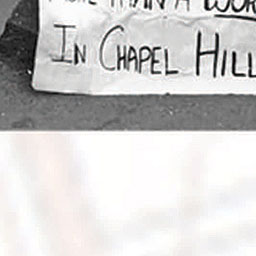 THAN A
IN CHAPEL HILL